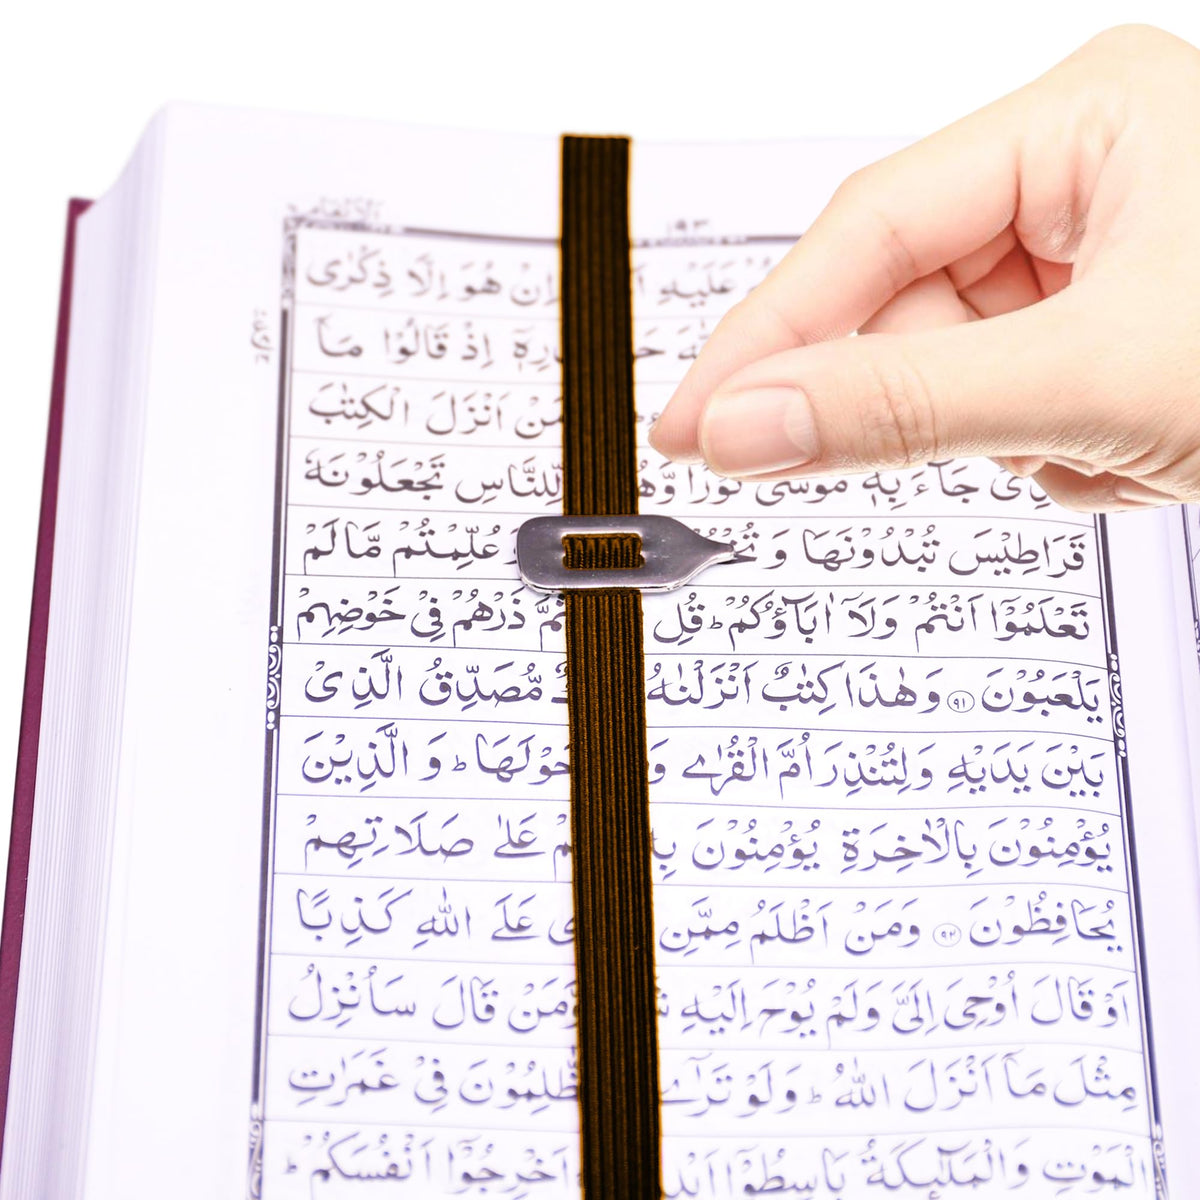 الانعام ١٩٣
عَلَيْهِ اِنْ هُوَ اِلَّا ذِكْرٰى
اِذْ قَالُوْا مَاۤ
اَنْزَلَ الْكِتٰبَ
جَآءَ بِهٖ مُوْسٰى نُوْرًا لِّلنَّاسِ تَجْعَلُوْنَهٗ
قَرَاطِيْسَ تُبْدُوْنَهَا وَ عُلِّمْتُمْ مَّا لَمْ
تَعْلَمُوْۤا اَنْتُمْ وَلَاۤ اٰبَآؤُكُمْ ؕ قُلِ ذَرْهُمْ فِيْ خَوْضِهِمْ
يَلْعَبُوْنَ ﴿٩١﴾ وَهٰذَا كِتٰبٌ اَنْزَلْنٰهُ مُّصَدِّقُ الَّذِيْ
بَيْنَ يَدَيْهِ وَلِتُنْذِرَ اُمَّ الْقُرٰى حَوْلَهَا ؕ وَ الَّذِيْنَ
يُؤْمِنُوْنَ بِالْاٰخِرَةِ يُؤْمِنُوْنَ عَلٰى صَلَاتِهِمْ
يُحَافِظُوْنَ ﴿٩٢﴾ وَمَنْ اَظْلَمُ مِمَّنِ عَلَى اللّٰهِ كَذِبًا
اَوْ قَالَ اُوْحِيَ اِلَيَّ وَلَمْ يُوْحَ اِلَيْهِ وَّمَنْ قَالَ سَاُنْزِلُ
مِثْلَ مَاۤ اَنْزَلَ اللّٰهُ ؕ وَلَوْ تَرٰۤى الظّٰلِمُوْنَ فِيْ غَمَرٰتِ
الْمَوْتِ وَالْمَلٰٓئِكَةُ بَاسِطُوْۤا اَخْرِجُوْۤا اَنْفُسَكُمْ ؕ